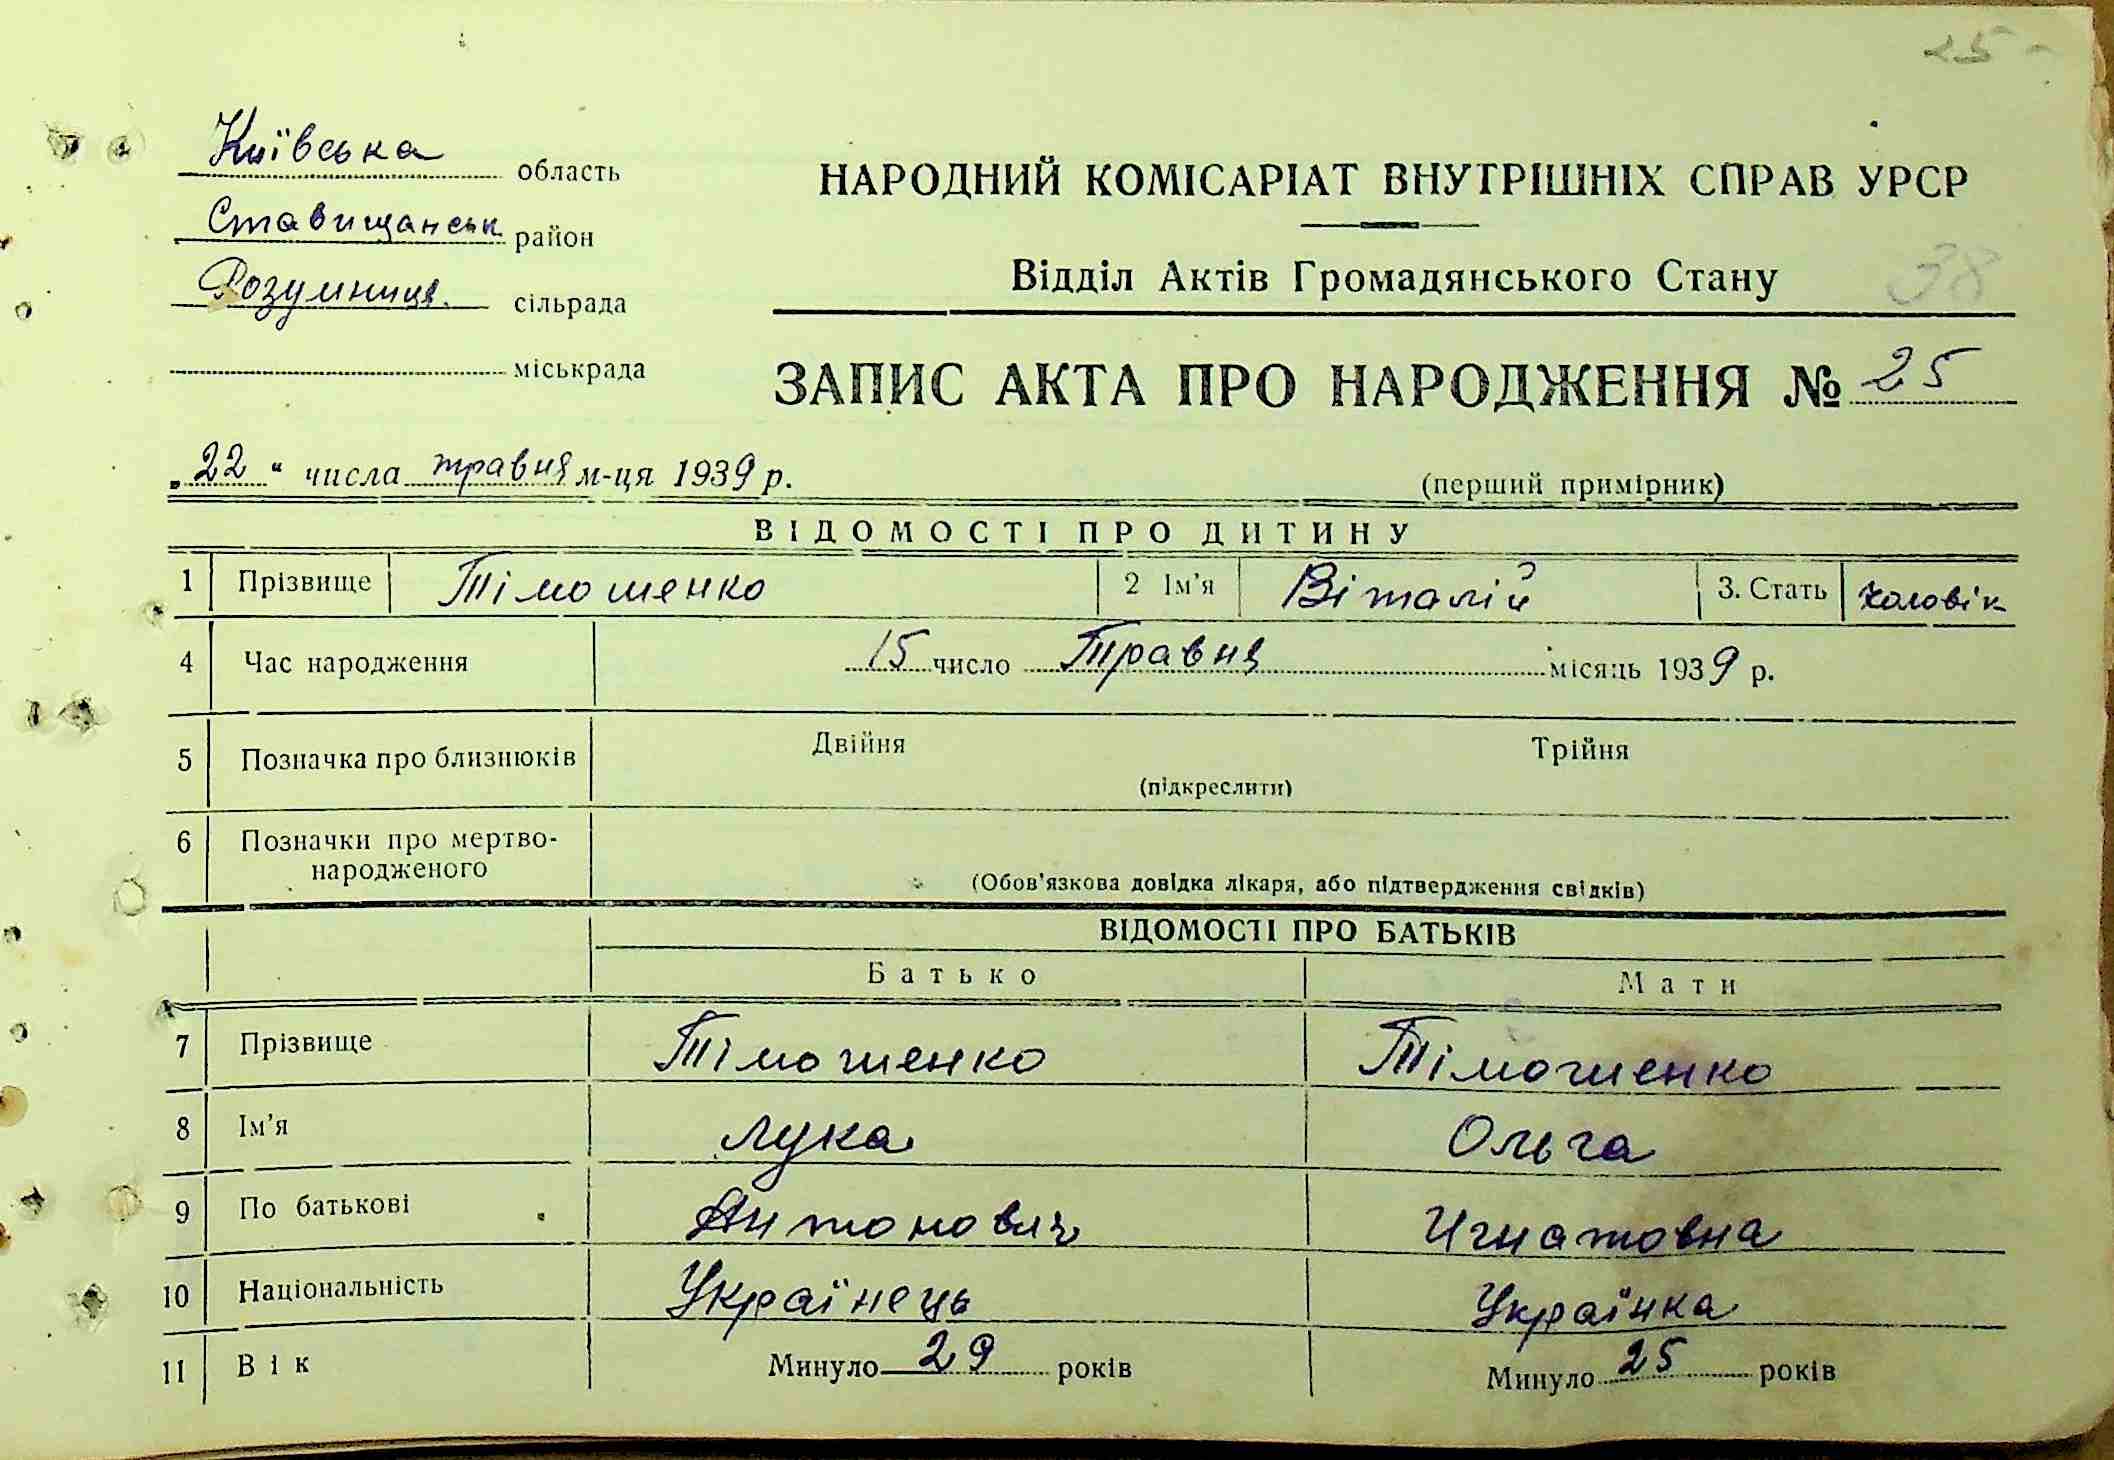 25 -
Київська область
Ставищанськ район
Розумниця. сільрада
міськрада
НАРОДНИЙ КОМІСАРІАТ ВНУТРІШНІХ СПРАВ УРСР
Відділ Актів Громадянського Стану
38
ЗАПИС АКТА ПРО НАРОДЖЕННЯ № 25
„22“ числа травня м-ця 1939 р.
(перший примірник)
ВІДОМОСТІ ПРО ДИТИНУ
1 Прізвище Тімошенко 2 Ім'я Віталій 3. Стать чоловік
4 Час народження 15 число Травня місяць 1939 р.
5 Позначка про близнюків Двійня Трійня
(підкреслити)
6 Позначки про мертво-
народженого
(Обов'язкова довідка лікаря, або підтвердження свідків)
ВІДОМОСТІ ПРО БАТЬКІВ
Батько Мати
7 Прізвище Тімошенко Тімошенко
8 Ім'я Лука Ольга
9 По батькові Антонович Игнатовна
10 Національність Українець Українка
11 Вік Минуло 29 років Минуло 25 років